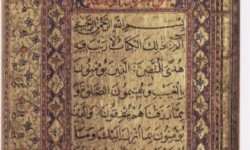 بسم الله الرحمن الرحيم
الم ذلك الكتاب لا ريب فيه
هدى للمتقين الذين يؤمنون
بالغيب ويقيمون الصلوة و
مما رزقناهم ينفقون والذين
يؤمنون بما انزل اليك وما